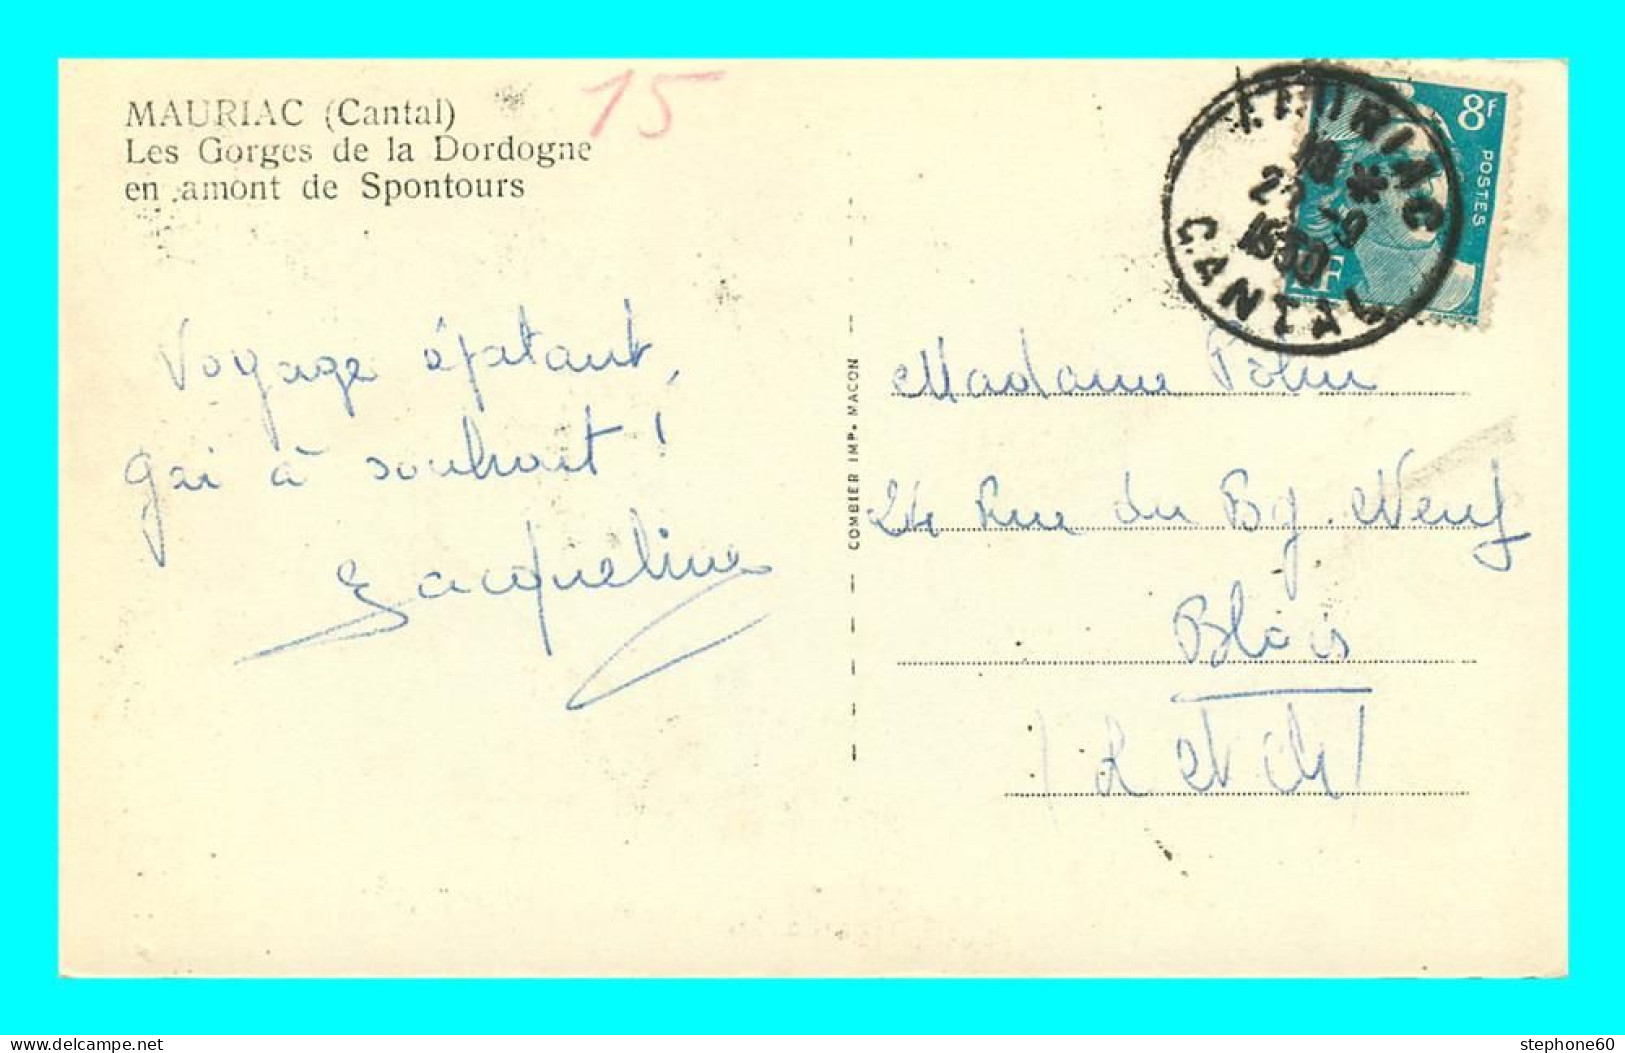 MAURIAC (Cantal)
Les Gorges de la Dordogne
en amont de Spontours
15
Voyage épatant,
gai à souhait !
Jacqueline
COMBIER IMP. MACON
8F
POSTES
RF
MAURIAC
18
1950
CANTAL
Madame
24 Rue du Bg. Neuf
Blois
(L et Ch)
delcampe.net
stephone60